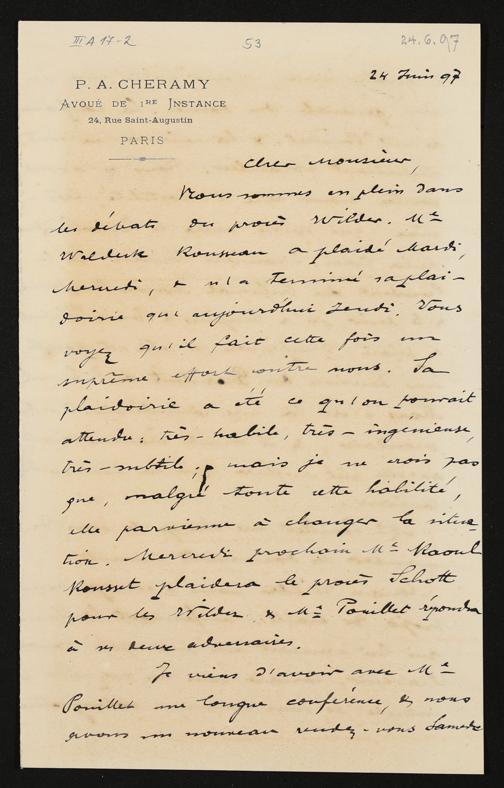 III A 17-2 53 24.6.97
24 Juin 97
P. A. CHERAMY
AVOUÉ DE 1RE INSTANCE
24, Rue Saint-Augustin
PARIS
Cher Monsieur,
Nous sommes en plein dans
les débats du procès Wilder. Me
Waldeck Rousseau a plaidé Mardi,
Mercredi, & n'a terminé sa plai-
doirie qu'aujourd'hui Jeudi. Vous
voyez qu'il fait cette fois un
suprême effort contre nous. Sa
plaidoirie a été ce qu'on pouvait
attendre : très-habile, très-ingénieuse,
très-subtile ; mais je ne crois pas
que, malgré toute cette habilité,
elle parvienne à changer la situa-
tion. Mercredi prochain Me Raoul
Rousset plaidera le procès Schott
pour les Wilder & Me Pouillet répondra
à ses deux adversaires.
Je viens d'avoir avec Me
Pouillet une longue conférence, & nous
avons un nouveau rendez-vous Samedi